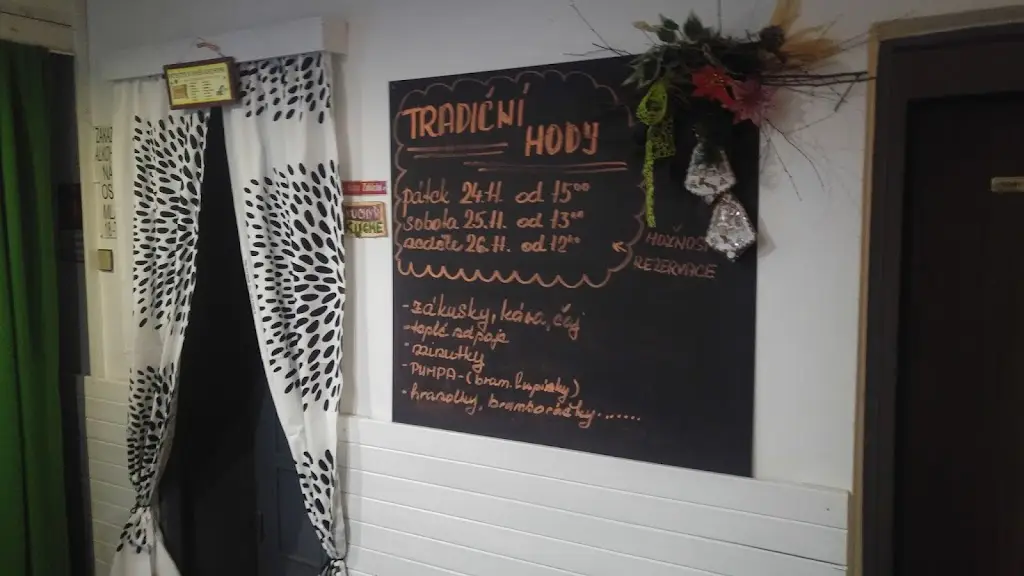 TRADIČNÍ
HODY
pátek 24.11. od 15⁰⁰
sobota 25.11. od 13⁰⁰
neděle 26.11. od 12⁰⁰
MOŽNOST
REZERVACE
- zákusky, káva, čaj
- teplé nápoje
- minutky
- PUMPA - (bram. lupínky)
- hranolky, bramboráčky......
ZÁKAZ